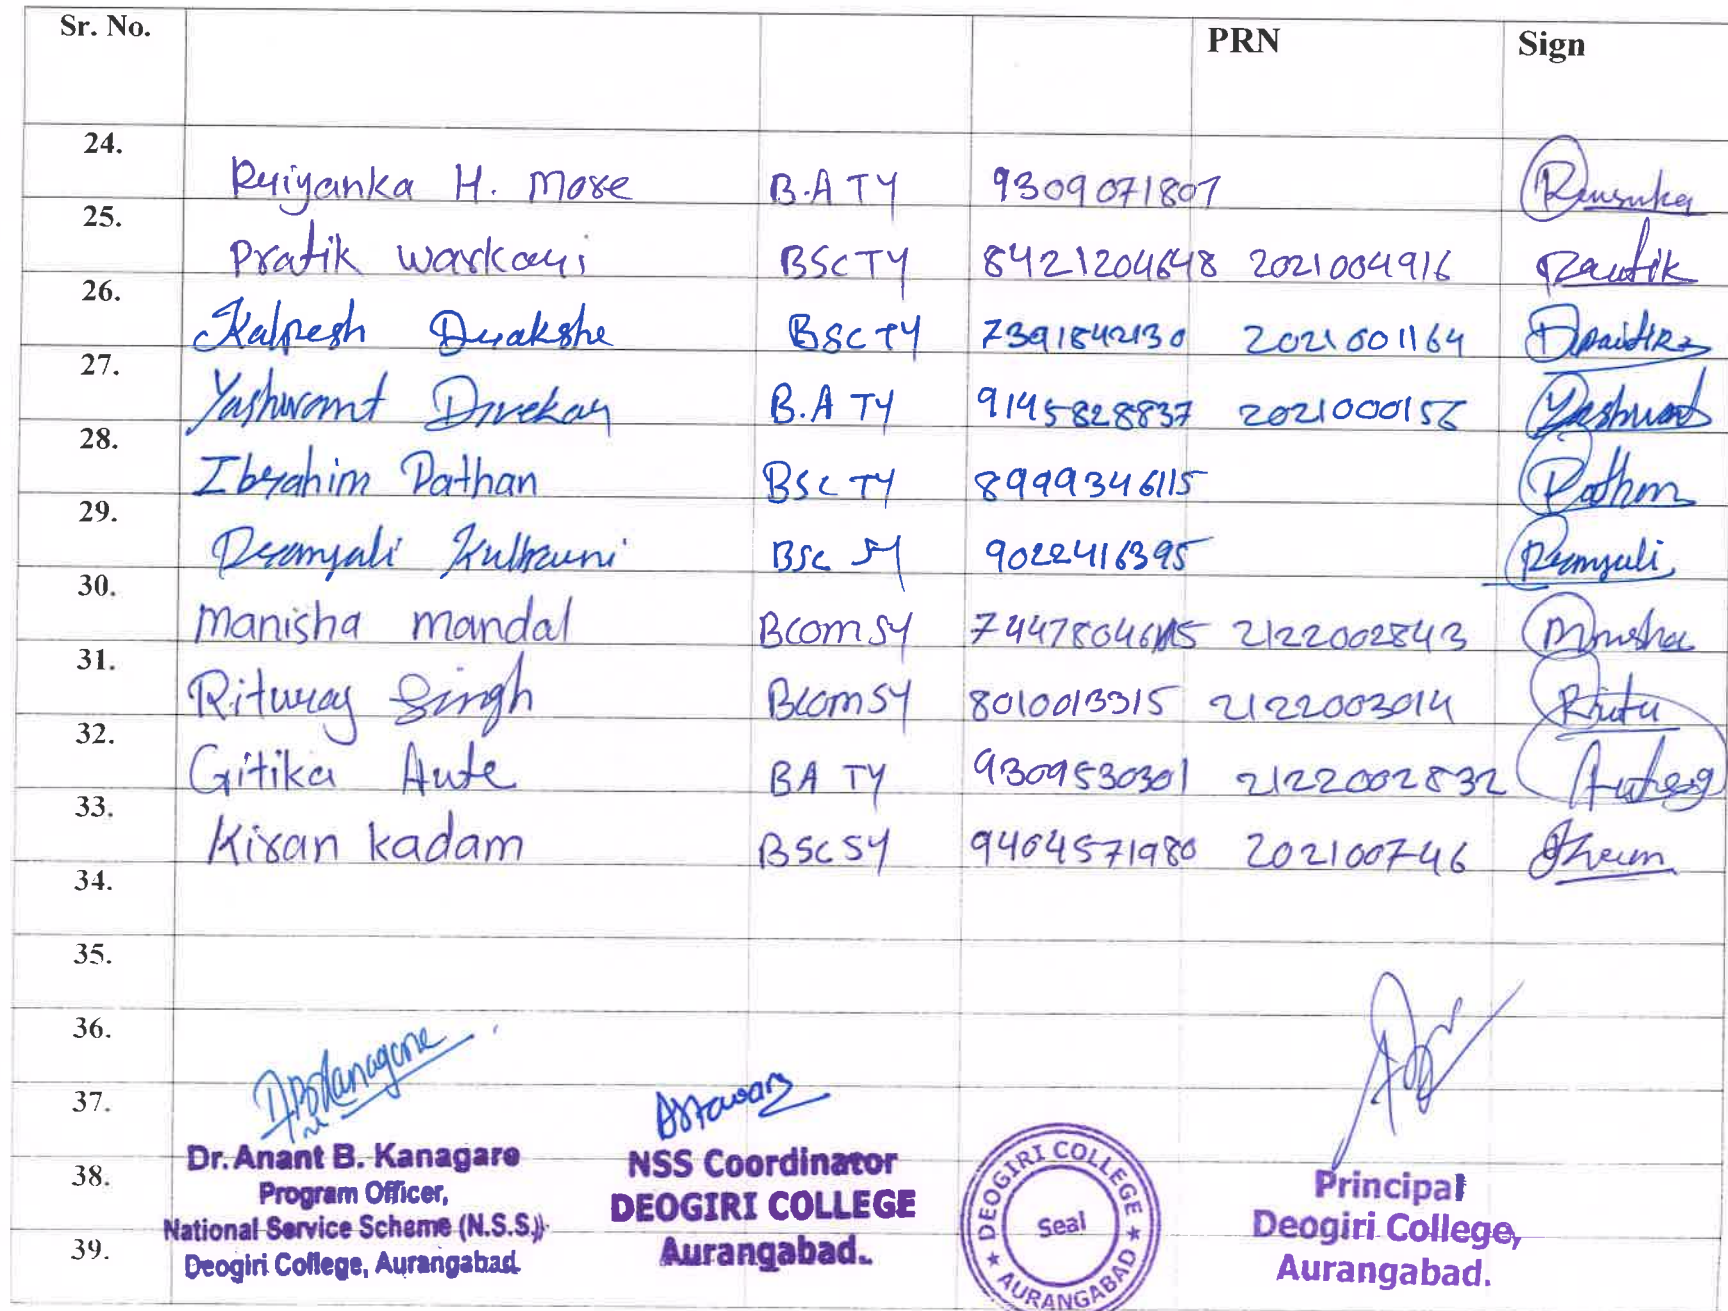 Sr. No. PRN Sign
24. Priyanka H. More B.A TY 9309071807
25. Pratik Warkari BSC TY 8421204648 2021004916 Pratik
26. Kalpesh Drakshe BSC TY 7391842130 2021001164
27. Yashwant Divekar B.A TY 9145828837 2021000156 Yashwant
28. Ibrahim Pathan BSC TY 8999346115 Pathan
29. Pranjali Kulkarni BSC SY 9022416395 Pranjali
30. Manisha mandal BCOM SY 2122002843 Manisha
31. Rituraj Singh BCOM SY 8010013315 2122003014 Ritu
32. Gitika Aute BA TY 9309530301 2122002832
33. Kiran kadam BSC SY 9404571980 202100746
34.
35.
36.
37.
38.
39.
Dr. Anant B. Kanagare
Program Officer,
National Service Scheme (N.S.S.)
Deogiri College, Aurangabad.
NSS Coordinator
DEOGIRI COLLEGE
Aurangabad.
DEOGIRI COLLEGE
Seal
★ AURANGABAD ★
Principal
Deogiri College,
Aurangabad.